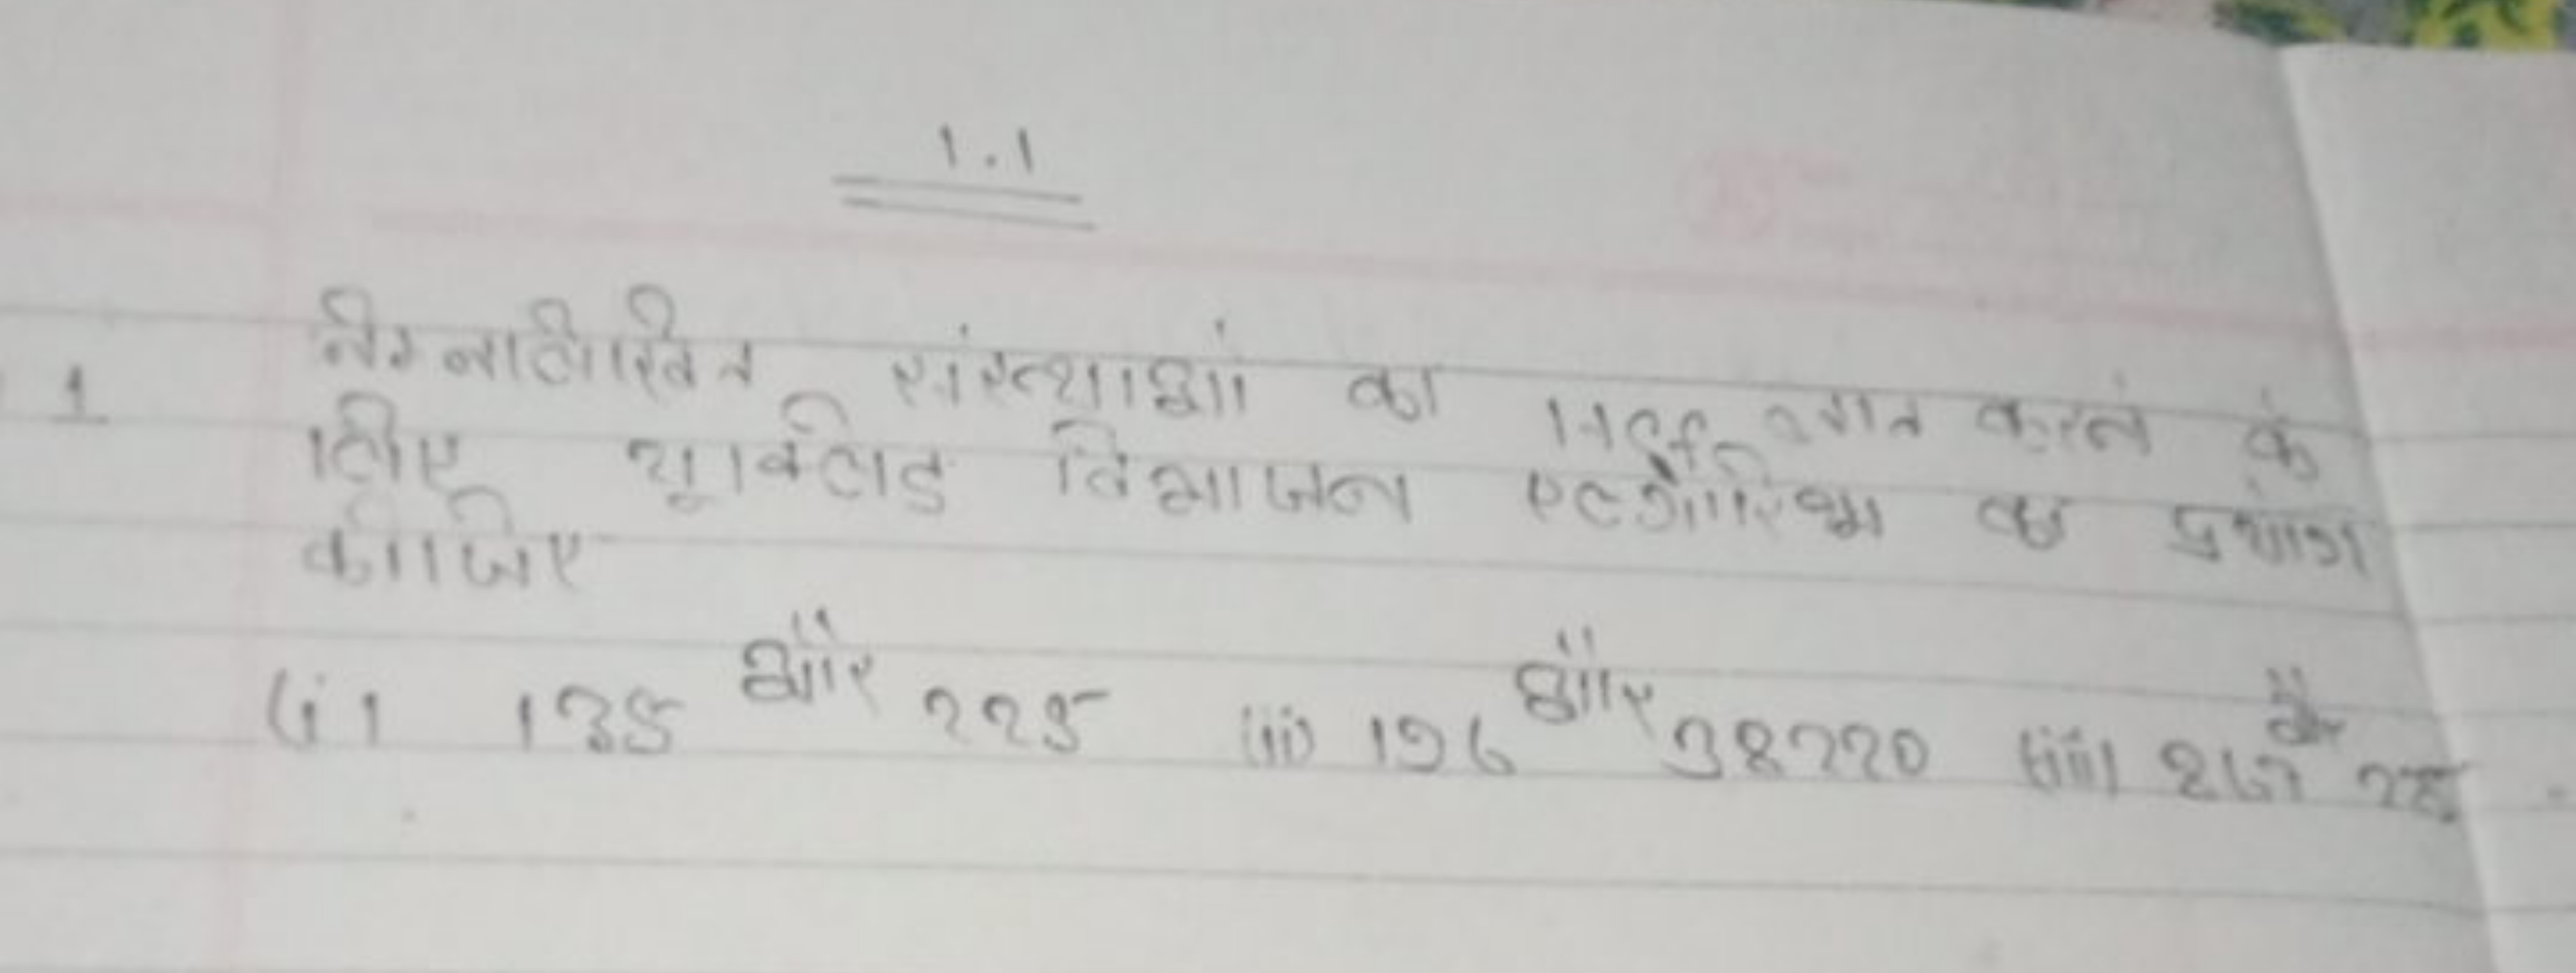 1.1
1 निम्नलिखित संख्याओं का HCF ज्ञात करने के
लिए यूक्लिड विभाजन एल्गोरिथ्म का प्रयोग
कीजिए
(i) 135 और 225 (ii) 196 और 38220 (iii) 867 और